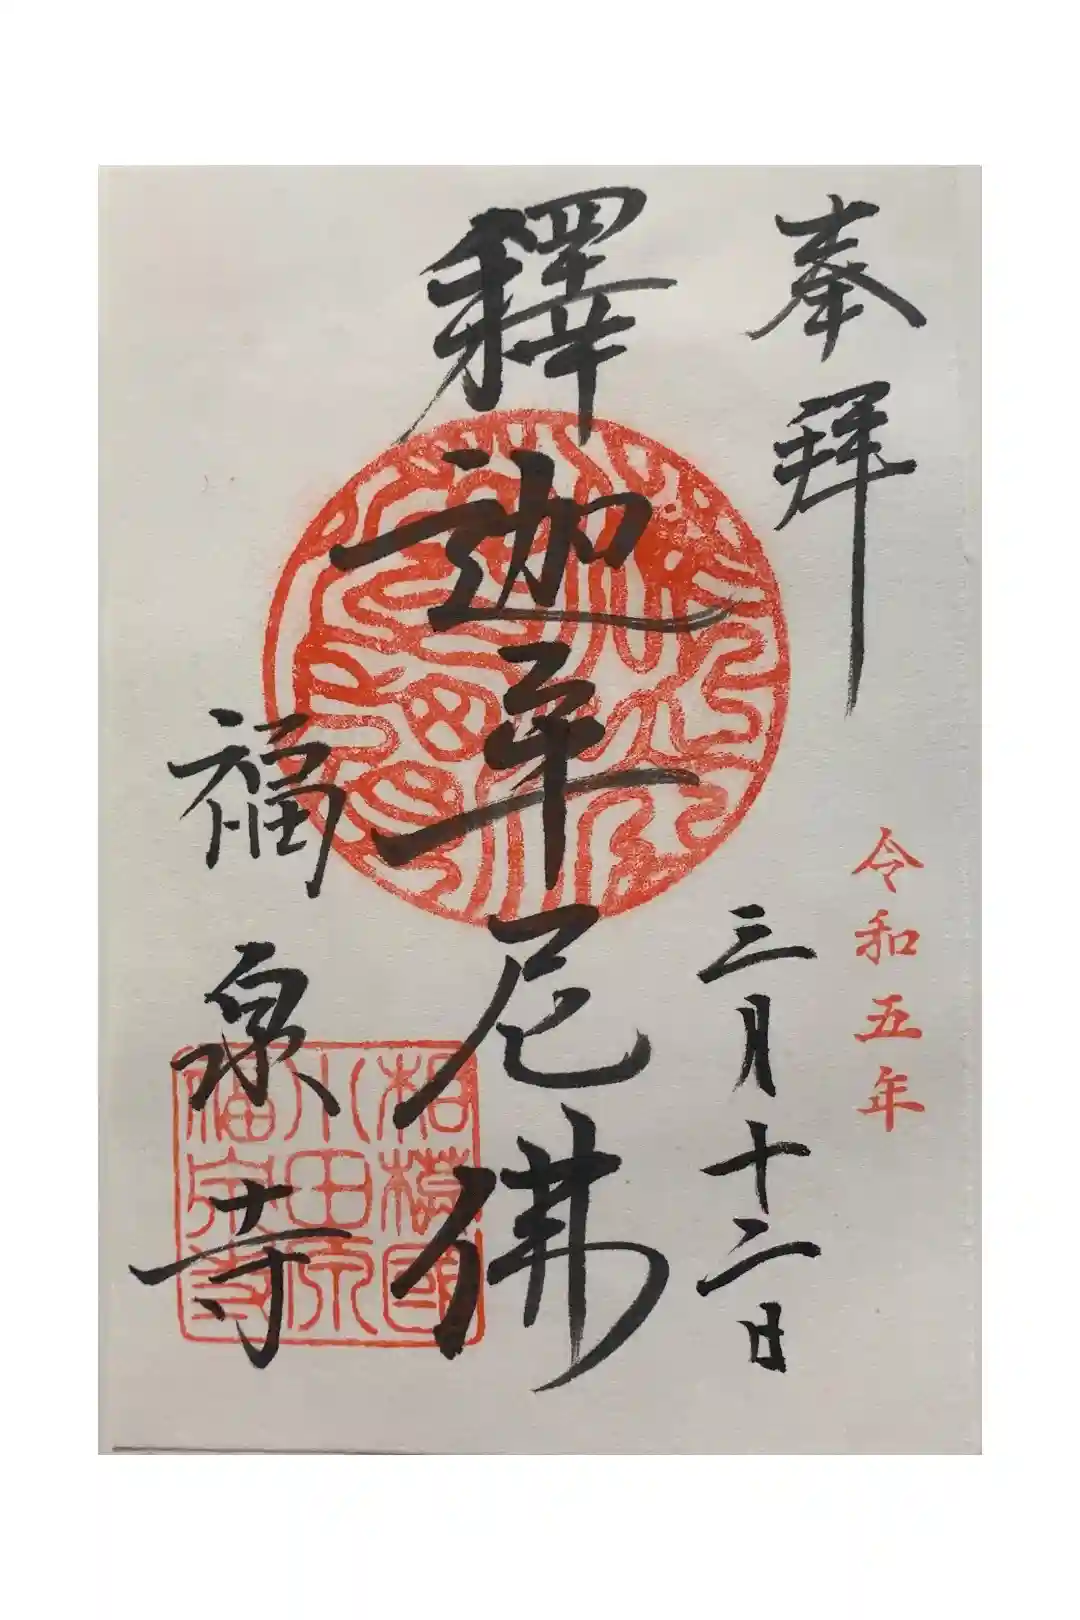 奉拜
令和五年
三月十二日
釋迦牟尼佛
福泉寺
相模國
小田原
福泉寺